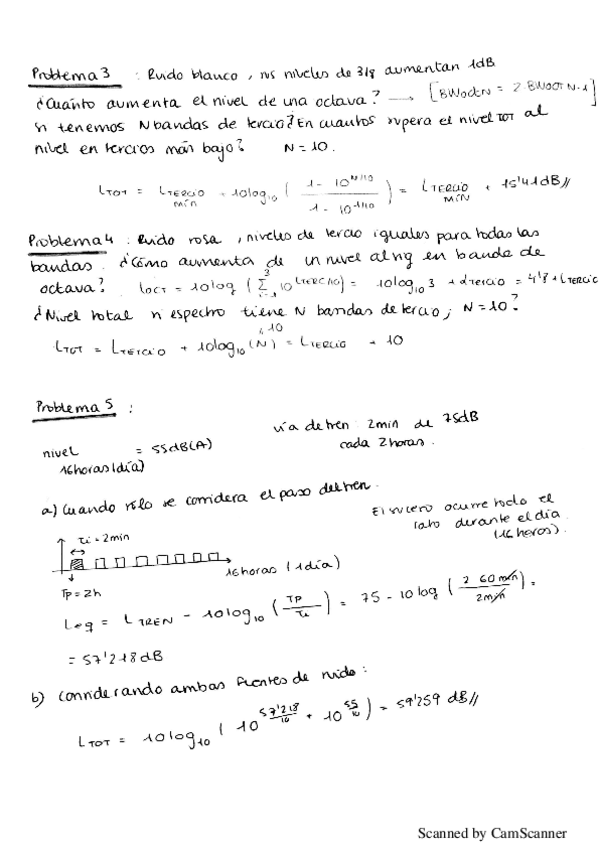 Problema 3 : Ruido blanco, sus niveles de 3/8 aumentan 1dB
¿Cuánto aumenta el nivel de una octava? → [BWoctN = 2·BWOCT N-1]
si tenemos N bandas de tercio? En cuantos supera el nivel TOT al
nivel en tercios más bajo? N = 10.
LTOT = LTERCIO MÍN + 10log10 ( (1 - 10^(N/10)) / (1 - 10^(1/10)) ) = LTERCIO MÍN + 15'41dB //
Problema 4 : Ruido rosa, niveles de tercio iguales para todas las
bandas. ¿Cómo aumenta de un nivel al sig en banda de
octava? LOCT = 10log ( Σ i=1 3 10^(LTERC/10) ) = 10log10 3 + LTERCIO = 4'8 + LTERCIO
¿Nivel total si espectro tiene N bandas de tercio, N = 10?
LTOT = LTERCIO + 10log10 (N) = LTERCIO + 10
10
Problema 5 :
vía de tren : 2min de 75dB
cada 2 horas.
nivel = 55dB(A)
16 horas (día)
a) Cuando sólo se considera el paso del tren.
El suceso ocurre todo el
rato durante el día
(16 horas).
τi = 2min
16 horas (1 día)
Tp = 2h
Leq = LTREN - 10log10 ( TP / τi ) = 75 - 10log ( 2·60 min / 2min ) =
= 57'218 dB
b) Considerando ambas fuentes de ruido :
LTOT = 10log10 ( 10^(57'218/10) + 10^(55/10) ) = 59'259 dB //
Scanned by CamScanner